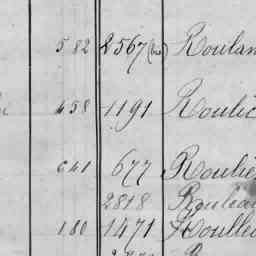 582 2567 (bis) Roulan
458 1191 Roulie
641 677 Roulie
2818 Rouleau
180 1471 Roulle